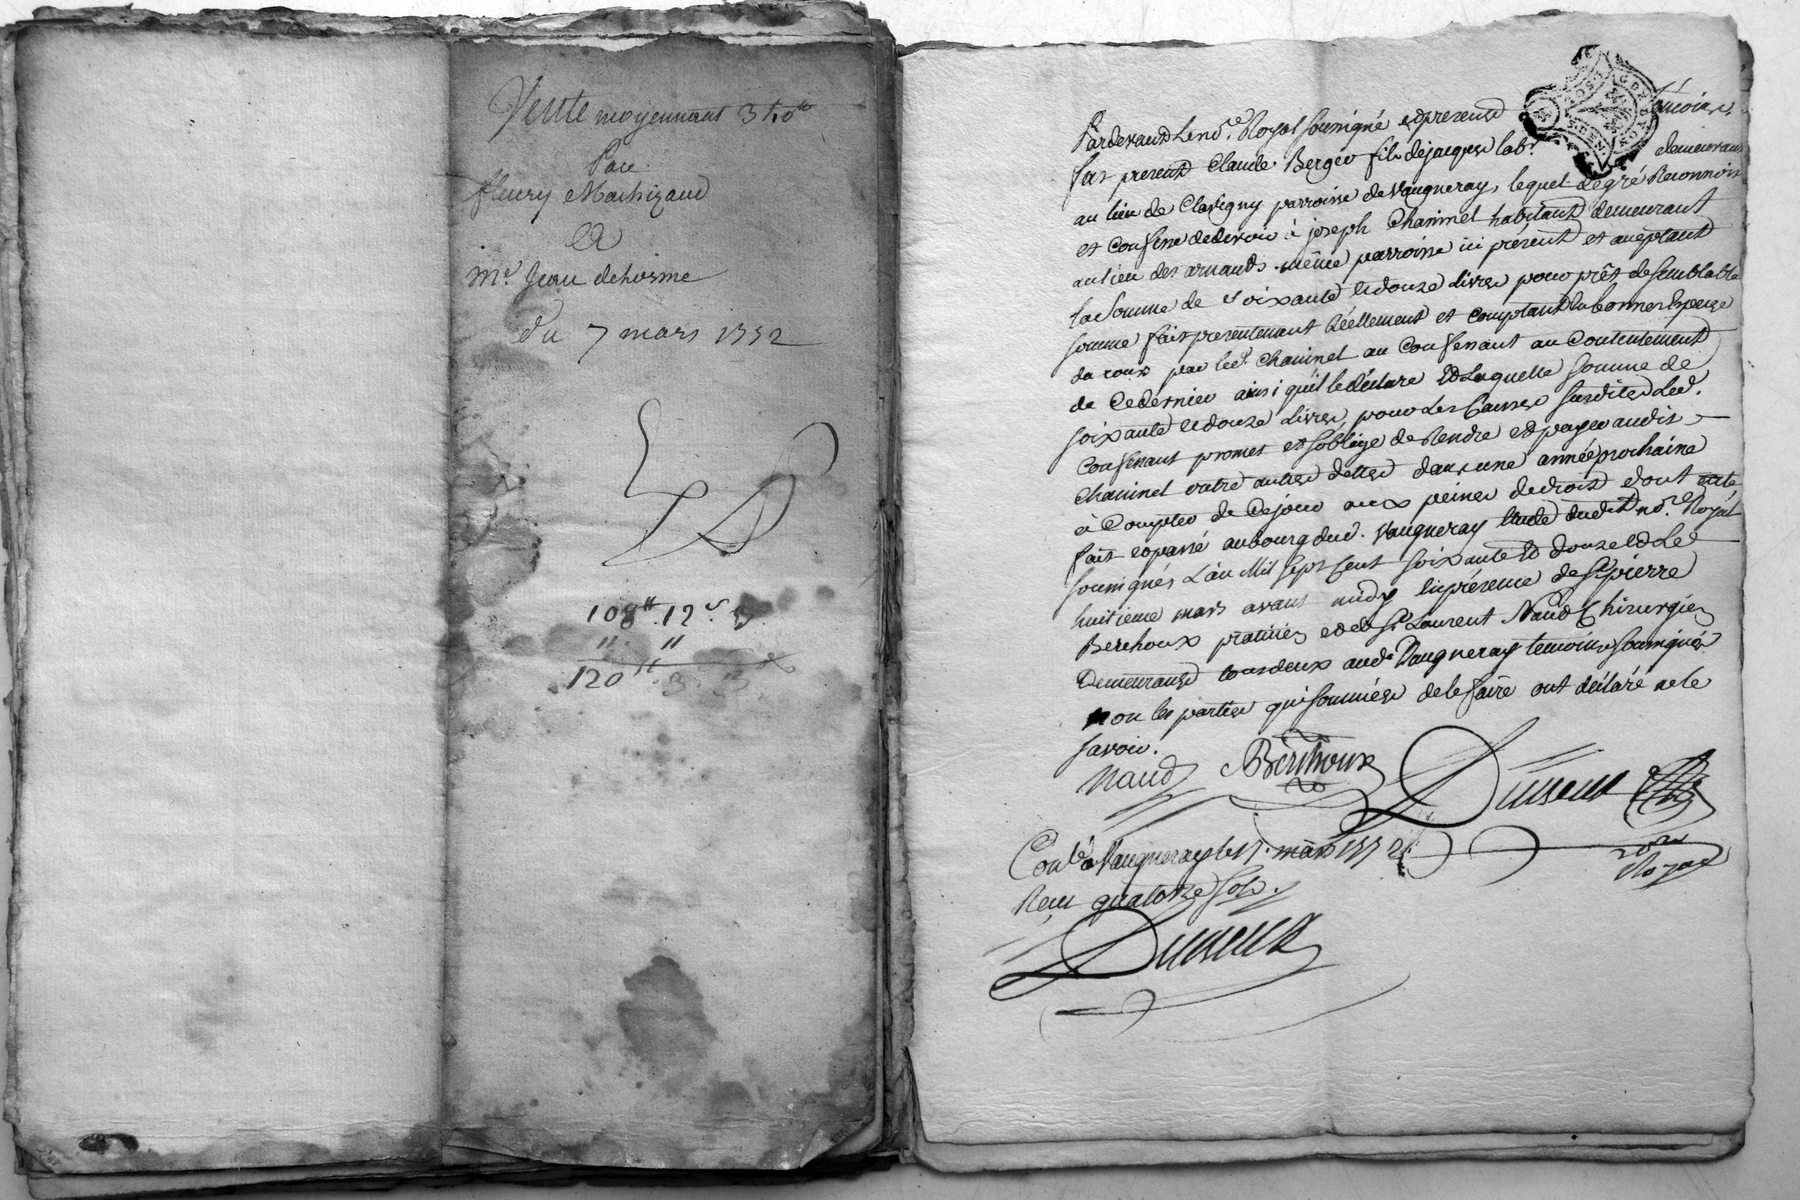 Vente moyennant 340 ₶
Par
fleury Mathizaud
A
Me. Jean dehorme
du 7 mars 1772
108 ₶. 12 s 9.
" . "
120 ₶. 3. 3.
Pardevant Le nore. Royal soussigné et présents témoins,
fut présent Claude Berger fils de jacques labr. demeurant
au lieu de Clavigny parroisse de Vaugneray, lequel de gré Reconnoit
et Confesse de devoir à joseph Chaninel habitant demeurant
au lieu des arnauds même parroisse ici présent et acceptant
la Somme de Soixante et douze Livres pour prêt de Semblable
somme fait presentement Réellement et Comptant en bonnes Especes
du cours par led. Chaninel au Confessant au Contentement
de Ce dernier ainsi qu'il le déclare Et Laquelle somme de
soixante et douze Livres, pour Les Causes susdites Led.
Confessant promet et s'oblige de Rendre et payer audit
Chaninel outre autres dettes dans une année prochaine
à Compter de Ce jour aux peines de droit dont acte
fait et passé au bourg dud. Vaugneray Etude dudit nore. Royal
soussigné L'an Mil sept Cent soixante Et douze Et Le
huitieme mars avant midy En présence de Sr. pierre
Berthoux praticien et de Sr. Laurent Naud Chirurgien
Demeurants tous deux aud. Vaugneray temoins soussignés
non les parties qui sommées de le faire ont déclaré ne le
savoir.
Naud Berthoux
nore
Royal
Conlé. à Vaugneray le 17. mars 1772
Reçu quatorze sols.